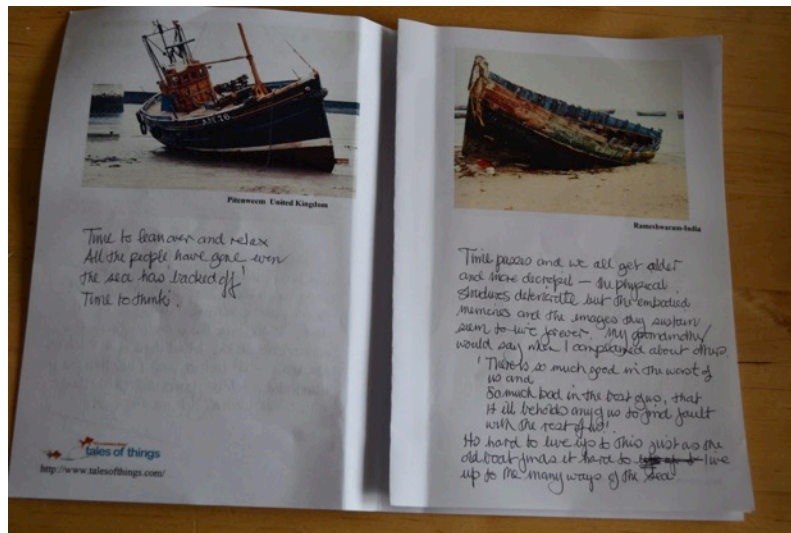 AH 26
Pittenweem United Kingdom
Time to lean over and relax
All the people have gone even
the sea has backed off!
Time to think.
tales of things
http://www.talesofthings.com/
Rameshwaram-India
Time passes and we all get older
and more decrepit – the physical
structures deteriorate but the embodied
memories and the images they sustain
seem to live forever. My grandmother
would say when I complained about others.
'There's so much good in the worst of
us and
So much bad in the best of us, that
it ill behoves any of us to find fault
with the rest of us'.
Its hard to live up to this just as the
old boat finds it hard to live
up to the many ways of the sea